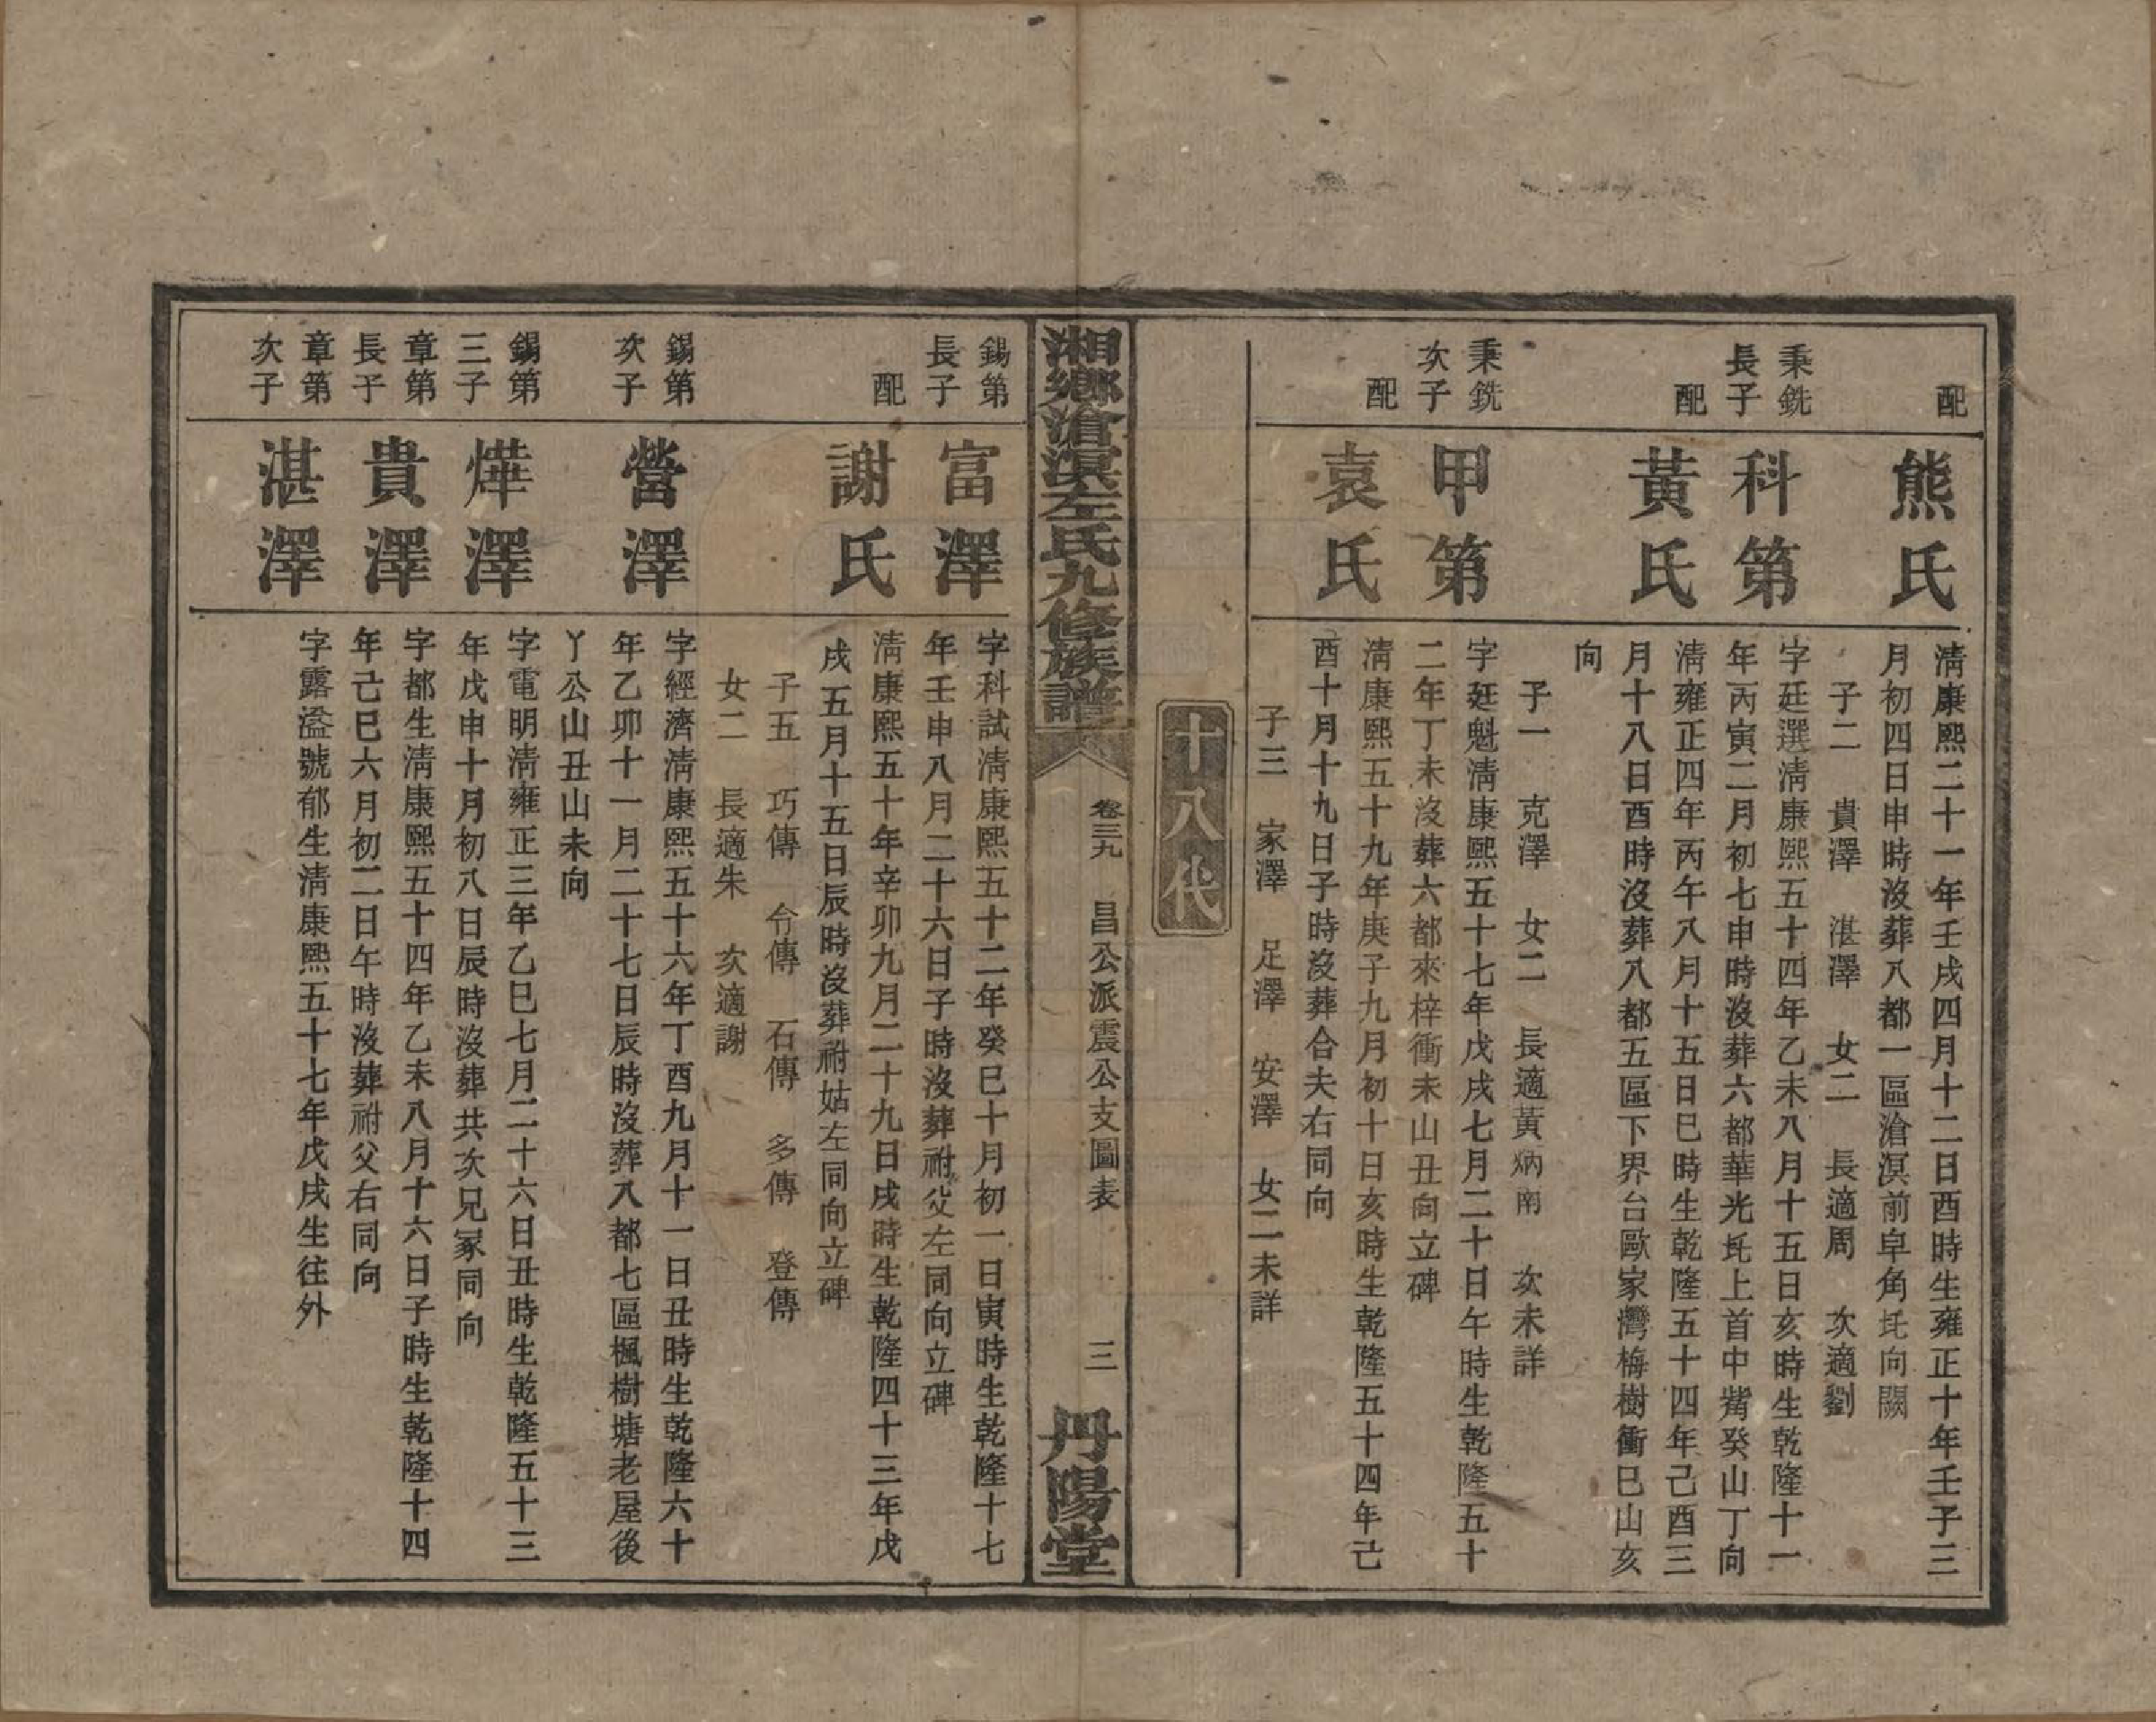 配
熊氏
清康熙二十一年壬戌四月十二日酉時生雍正十年壬子三
月初四日申時沒葬八都一區滄溟前皁角坉向闕
子二 貴澤 湛澤 女二 長適周 次適劉
秉銑
長子
科第
字廷選清康熙五十四年乙未八月十五日亥時生乾隆十一
年丙寅二月初七申時沒葬六都華光坉上首中嘴癸山丁向
配
黃氏
清雍正四年丙午八月十五日巳時生乾隆五十四年己酉三
月十八日酉時沒葬八都五區下界台歐家灣梅樹衝巳山亥
向
子一 克澤 女二 長適黃炳南 次未詳
秉銑
次子
甲第
字廷魁清康熙五十七年戊戌七月二十日午時生乾隆五十
二年丁未沒葬六都來梓衝未山丑向立碑
配
袁氏
清康熙五十九年庚子九月初十日亥時生乾隆五十四年己
酉十月十九日子時沒葬合夫右同向
子三 家澤 足澤 安澤 女二未詳
十八代
湘鄉滄溟左氏九修族譜
卷三九 昌公派震公支圖表 三
丹陽堂
錫第
長子
富澤
字科試清康熙五十二年癸巳十月初一日寅時生乾隆十七
年壬申八月二十六日子時沒葬祔父左同向立碑
配
謝氏
清康熙五十年辛卯九月二十九日戌時生乾隆四十三年戊
戌五月十五日辰時沒葬祔姑左同向立碑
子五 巧傳 令傳 石傳 多傳 登傳
女二 長適朱 次適謝
錫第
次子
營澤
字經濟清康熙五十六年丁酉九月十一日丑時生乾隆六十
年乙卯十一月二十七日辰時沒葬八都七區楓樹塘老屋後
丫公山丑山未向
錫第
三子
燁澤
字電明清雍正三年乙巳七月二十六日丑時生乾隆五十三
年戊申十月初八日辰時沒葬共次兄冢同向
章第
長子
貴澤
字都生清康熙五十四年乙未八月十六日子時生乾隆十四
年己巳六月初二日午時沒葬祔父右同向
章第
次子
湛澤
字露溢號郁生清康熙五十七年戊戌生往外